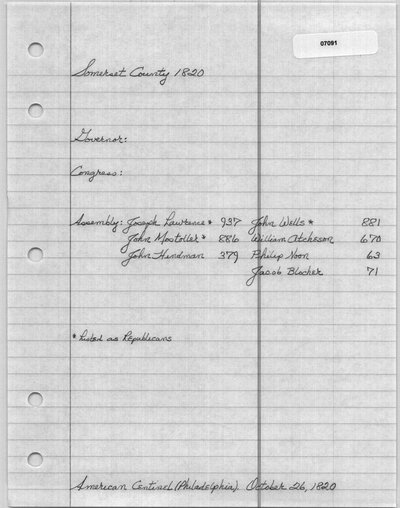 07091
Somerset County 1820
Governor:
Congress:
Assembly: Joseph Lawrence* 937 John Wells* 881
John Mostoller* 886 William Atcheson 670
John Hendman 379 Philip Noon 63
Jacob Blocher 71
*Listed as Republicans
American Centinel (Philadelphia). October 26, 1820